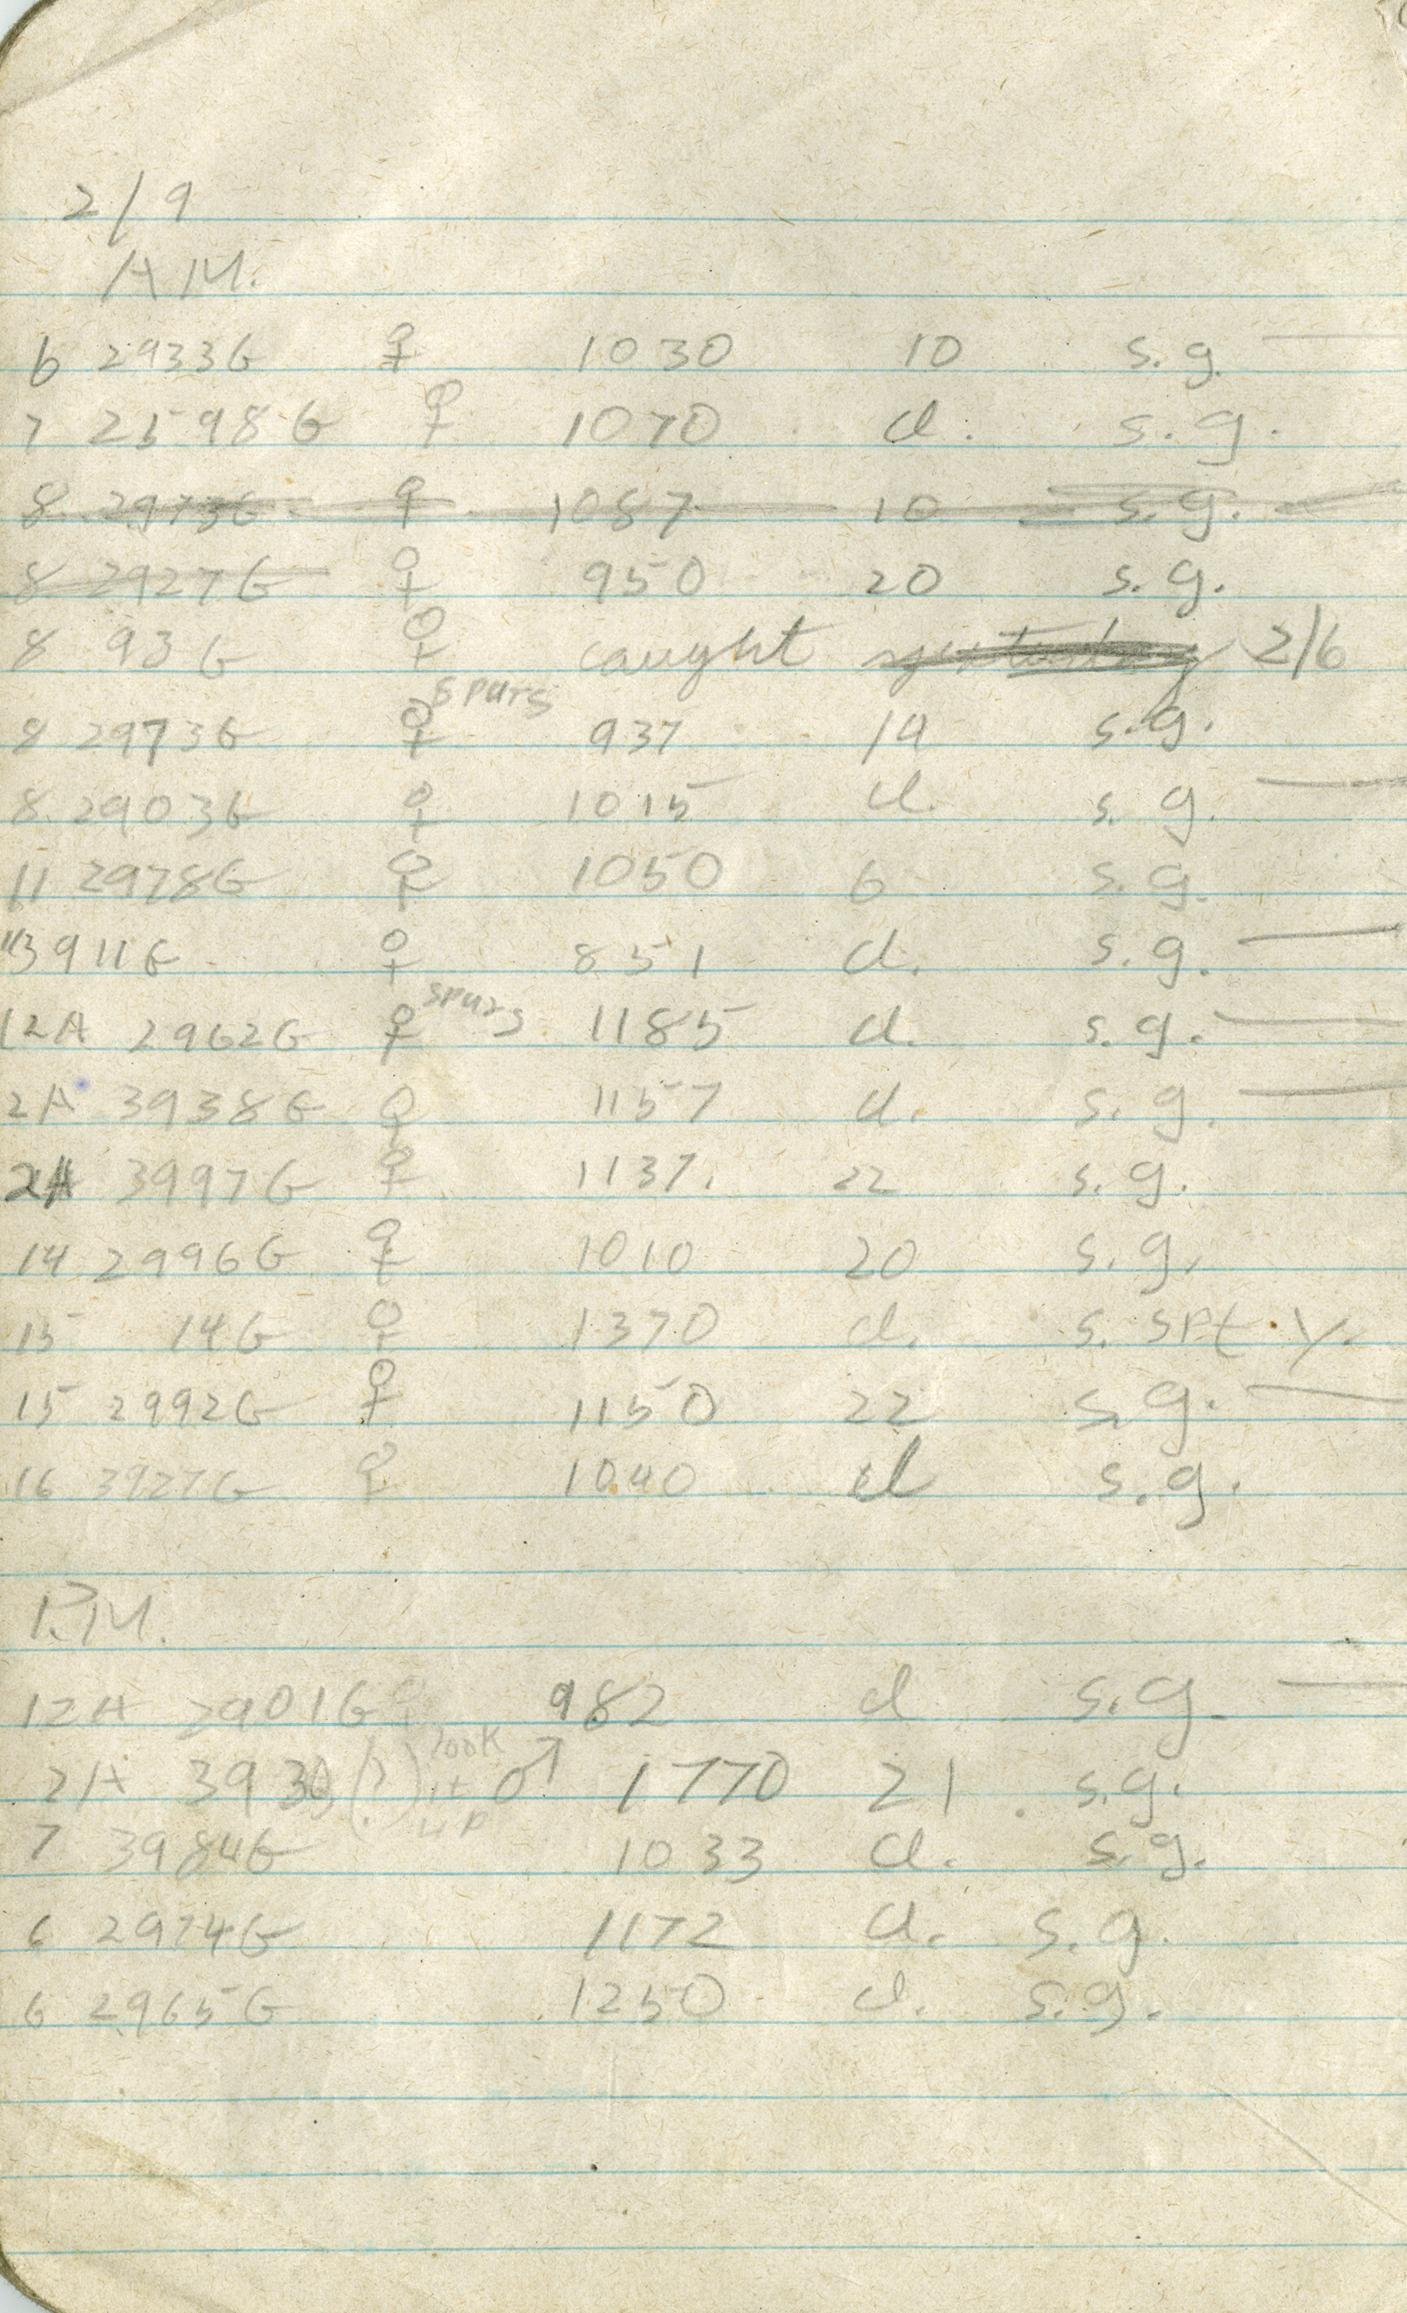 2/9
A.M.
6 2933G ♀ 1030 10 s.g. —
7 2598G ♀ 1070 d. s.g.
8 2973G ♀ 1087 10 s.g. —
8 2927G ♀ 950 20 s.g.
8 93G ♀ caught yesterday 2/6
8 2973G ♀ spurs 937 19 s.g.
8 2903G ♀ 1015 d. s.g. —
11 2978G ♀ 1050 6 s.g.
11 3911G ♀ 851 d. s.g. —
12A 2962G ♀ spurs 1185 d. s.g. —
2A 3938G ♀ 1157 d. s.g. —
2A 3997G ♀ 1137. 22 s.g.
14 2996G ♀ 1010 20 s.g.
15 14G ♀ 1370 d. s. spt. y.
15 2992G ♀ 1150 22 s.g. —
16 3927G ♀ 1040 d s.g.
P.M.
12A 2901G ♀ 982 d s.g. —
2A 3930 (?) look it up ♂ 1770 21. s.g.
7 3984G 1033 d. s.g.
6 2974G 1172 d. s.g.
6 2965G 1250 d. s.g.